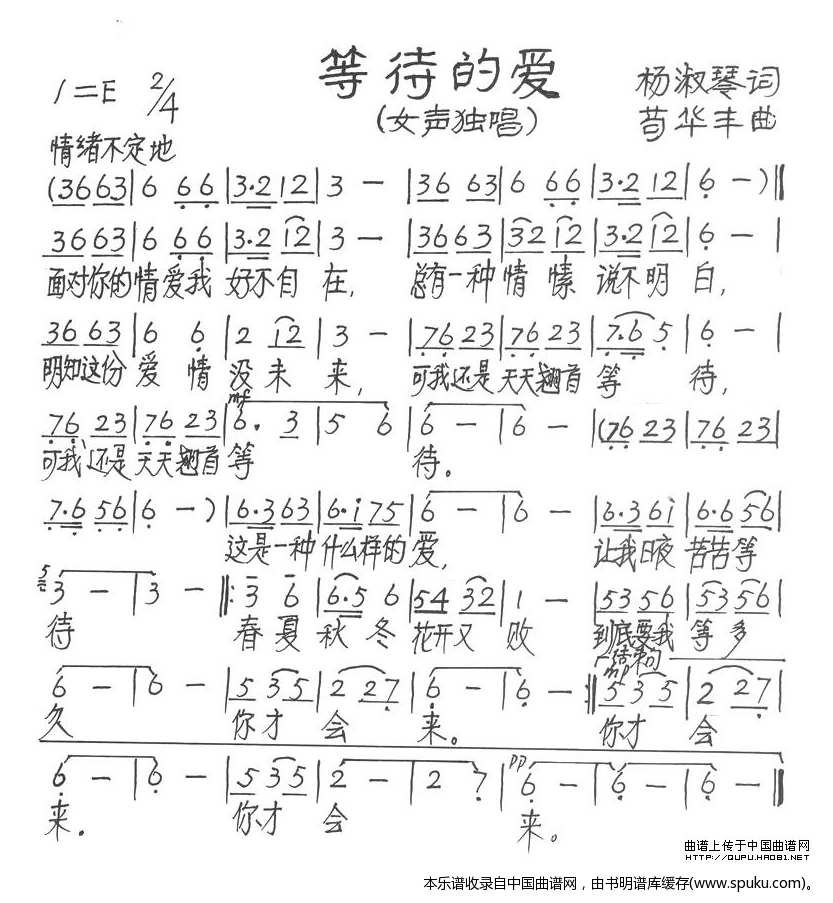 等待的爱
(女声独唱)
1=E 2/4
杨淑琴词
苟华丰曲
情绪不定地
(36 63 | 6 66 | 3·2 12 | 3 — | 36 63 | 6 66 | 3·2 12 | 6 — )‖
36 63 | 6 66 | 3·2 12 | 3 — | 36 63 | 32 12 | 3·2 12 | 6 — |
面对你的情爱我 好不自 在, 总有一种 情 愫 说不明 白,
36 63 | 6 6 | 2 12 | 3 — | 76 23 | 76 23 | 7·6 5 | 6 — |
明知这份 爱 情 没 未 来, 可我还是 天天翘首 等 待,
mf
76 23 | 76 23 | 6· 3 | 5 6 | 6 — | 6 — | (76 23 | 76 23 |
可我还是 天天翘首 等 待。
7·6 56 | 6 — ) | 6·3 63 | 6·i 75 | 6 — | 6 — | 6·3 6i | 6·6 56 |
这是一种 什么样的 爱, 让我日夜 苦苦等
5 3 — | 3 — ‖: 3 6 | 6·5 6 | 54 32 | 1 — | 53 56 | 53 56 |
待 春 夏 秋 冬 花开又 败 到底要我 等 多
结束句
mp
6 — | 6 — | 5 35 | 2 27 | 6 — | 6 — :‖ 5 35 | 2 27 |
久 你才 会 来。 你才 会
pp
6 — | 6 — | 5 35 | 2 — | 2 7 | 6 — | 6 — | 6 — ‖
来。 你才 会 来。
曲谱上传于中国曲谱网
HTTP://QUPU.HAO81.NET
本乐谱收录自中国曲谱网，由书明谱库缓存(www.spuku.com)。